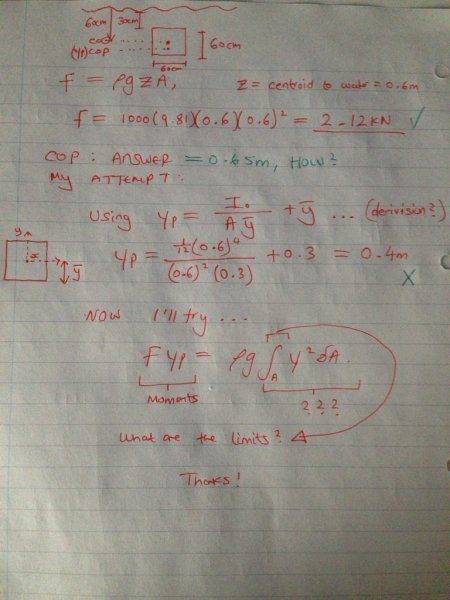 60cm 30cm
COG
(yp) COP
60cm
60cm
F = ρgzA, z = centroid to water = 0.6m
F = 1000(9.81)(0.6)(0.6)² = 2.12KN ✓
COP: ANSWER = 0.65m, HOW?
MY ATTEMPT:
Using yp = I₀/(A ȳ) + ȳ ... (derivision?)
y
x
ȳ
yp = (1/12 (0.6)⁴)/((0.6)² (0.3)) + 0.3 = 0.4m
X
NOW I'll try ...
F yp = ρg ∫_A y² δA.
Moments
? ? ?
What are the limits?
Thanks!